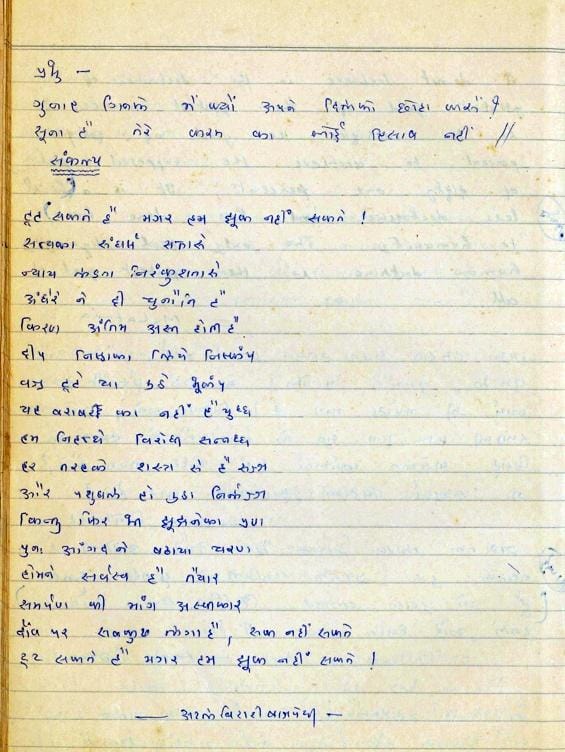 प्रभु —
गुनाह गिनके में क्यों अपने दिलको छोटा करूँ ?
सूना है तेरे करम का कोई हिसाब नहीं //
संकल्प
टूट सकते है मगर हम झूक नहीं सकते !
सत्यका संघर्ष सत्तासे
न्याय लडता निरंकुशतासे
अंधेरे ने दी चुनौति है
किरण अंतिम अस्त होती है
दीप निष्ठाका लिये निष्कंप
वज्र टूटे या उठे भूकंप
यह बराबरी का नहीं है युध्ध
हम निहथ्थे विरोधी सन्नध्ध
हर तरहके शस्त्र से है सज्ज
और पशुबल हो उठा निर्लज्ज
किन्तु फिर भी झूझनेका प्रण
पुनः अंगद ने बढाया चरण
होमने सर्वस्व है तैयार
समर्पण की मांग अस्वीकार
दाँव पर सबकुछ लगा है, रूक नहीं सकते
टूट सकते है मगर हम झूक नहीं सकते !
— अटल बिहारी बाजपेयी —